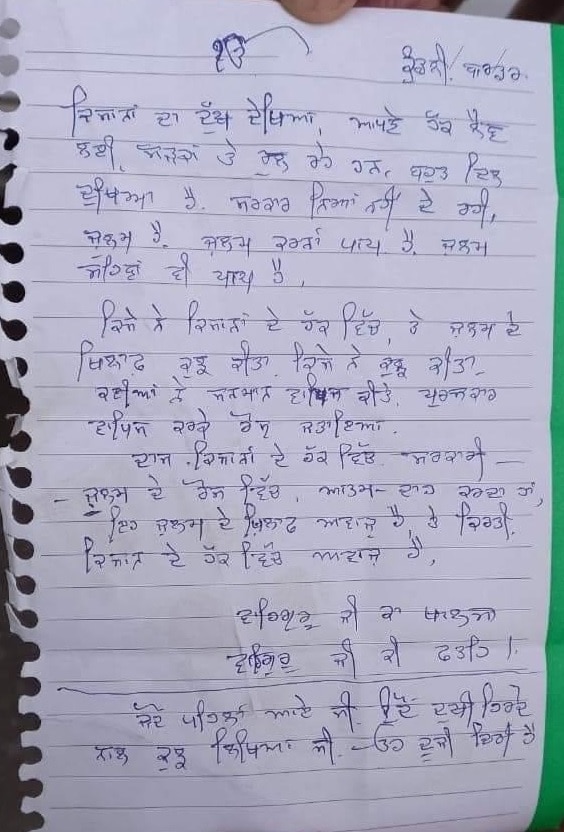 ੴ
ਕੁੰਡਲੀ ਬਾਰਡਰ.
ਕਿਸਾਨਾਂ ਦਾ ਦੁੱਖ ਦੇਖਿਆ, ਆਪਣੇ ਹੱਕ ਲੈਣ
ਲਈ, ਸੜਕਾਂ ਤੇ ਰੁਲ ਰਹੇ ਹਨ. ਬਹੁਤ ਦਿਲ
ਦੁਖਿਆ ਹੈ. ਸਰਕਾਰ ਨਿਆਂ ਨਹੀਂ ਦੇ ਰਹੀ,
ਜ਼ੁਲਮ ਹੈ. ਜ਼ੁਲਮ ਕਰਨਾਂ ਪਾਪ ਹੈ. ਜ਼ੁਲਮ
ਸਹਿਣਾਂ ਵੀ ਪਾਪ ਹੈ,
ਕਿਸੇ ਨੇ ਕਿਸਾਨਾਂ ਦੇ ਹੱਕ ਵਿੱਚ, ਤੇ ਜ਼ੁਲਮ ਦੇ
ਖਿਲਾਫ ਕੁਝ ਕੀਤਾ. ਕਿਸੇ ਨੇ ਕੁਝ ਕੀਤਾ.
ਕਈਆਂ ਨੇ ਸਨਮਾਨ ਵਾਪਿਸ ਕੀਤੇ, ਪੁਰਸਕਾਰ
ਵਾਪਿਸ ਕਰਕੇ ਰੋਸ ਜਤਾਇਆ.
ਦਾਸ ਕਿਸਾਨਾਂ ਦੇ ਹੱਕ ਵਿੱਚ. ਸਰਕਾਰੀ —
— ਜ਼ੁਲਮ ਦੇ ਰੋਸ ਵਿੱਚ, ਆਤਮ-ਦਾਹ ਕਰਦਾ ਹਾਂ,
ਇਹ ਜ਼ੁਲਮ ਦੇ ਖ਼ਿਲਾਫ ਆਵਾਜ਼ ਹੈ, ਤੇ ਕਿਰਤੀ.
ਕਿਸਾਨ ਦੇ ਹੱਕ ਵਿੱਚ ਆਵਾਜ਼ ਹੈ,
ਵਾਹਿਗੁਰੂ ਜੀ ਕਾ ਖਾਲਸਾ
ਵਾਹਿਗੁਰੂ ਜੀ ਕੀ ਫਤਹਿ।
ਜਦੋਂ ਪਹਿਲਾਂ ਆਏ ਸੀ. ਉਦੋਂ ਦੁਖੀ ਹਿਰਦੇ
ਨਾਲ ਕੁਝ ਲਿਖਿਆ ਸੀ. - ਉਹ ਦੂਜੀ ਹੈ